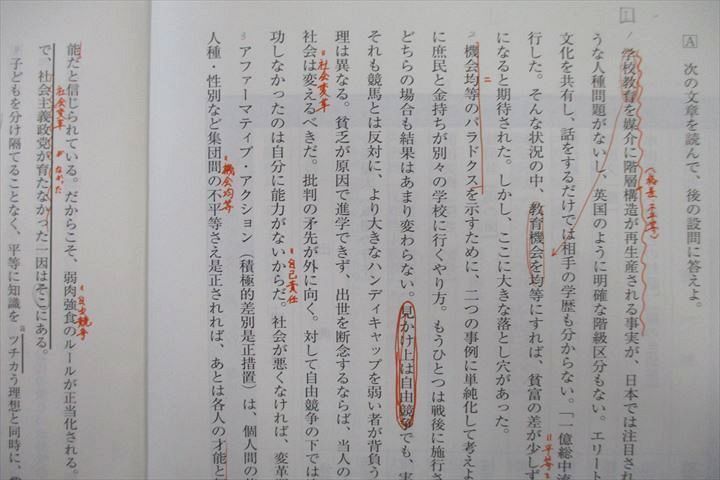 A 次の文章を読んで、後の設問に答えよ。
1
1 学校教育を媒介に階層構造が再生産される事実が、日本では注目され
(格差・不平等)
うな人種問題がないし、英国のように明確な階級区分もない。エリート
文化を共有し、話をするだけでは相手の学歴も分からない。「一億総中流
行した。そんな状況の中、教育機会を均等にすれば、貧富の差が少しず
になると期待された。しかし、ここに大きな落とし穴があった。
2 機会均等のパラドクスを示すために、二つの事例に単純化して考えよ
に庶民と金持ちが別々の学校に行くやり方。もうひとつは戦後に施行さ
どちらの場合も結果はあまり変わらない。見かけ上は自由競争でも、実
それも競馬とは反対に、より大きなハンディキャップを弱い者が背負う
理は異なる。貧乏が原因で進学できず、出世を断念するならば、当人の
社会変革
社会は変えるべきだ。批判の矛先が外に向く。対して自由競争の下では
自己責任
功しなかったのは自分に能力がないからだ。社会が悪くなければ、変革
3 アファーマティブ・アクション(積極的差別是正措置)は、個人間の
機会均等
人種・性別など集団間の不平等さえ是正されれば、あとは各人の才能と
能だと信じられている。だからこそ、弱肉強食のルールが正当化される。
自由競争
社会変革 が なかった
で、社会主義政党が育たなかった一因はそこにある。
子どもを分け隔てることなく、平等に知識をツチカう理想と同時に、